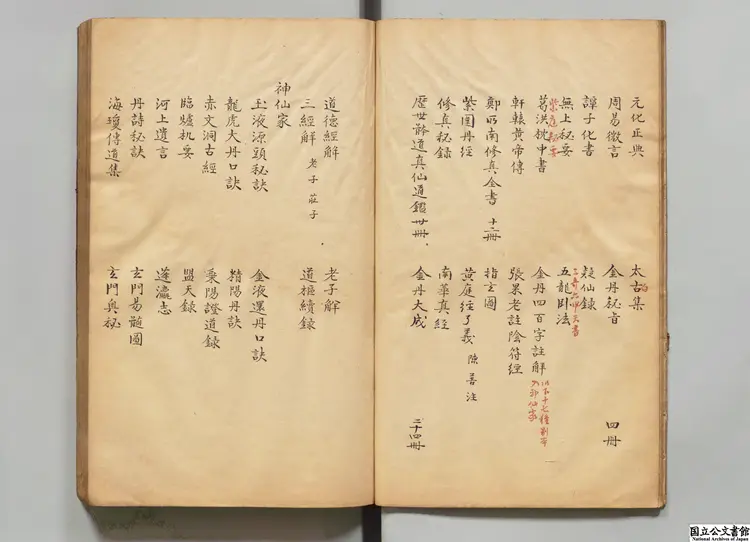 元化正典 太古集
周易徵言 金丹秘旨 四冊
譚子化書 疑仙錄
無上秘要 五龍卧法
葛洪枕中書 金丹四百字註解
軒轅黃帝傳 張果老註陰符經
鄭所南修真全書 十二冊 指玄圖
紫團丹經 黃庭經了義 陳善注
修真秘錄 南華真經
歷世體道真仙通鑑 卅冊 金丹大成 三十四冊
道德經解 老子解
三經解 老子 莊子 道樞續錄
神仙家
玉液源頭秘訣 金液還丹口訣
龍虎大丹口訣 精陽丹訣
赤文洞古經 栗陽證道錄
臨爐机要 盟天錄
河上遺言 蓬瀛志
丹詩秘訣 玄門易髓圖
海瓊傳道集 玄門奥秘
国立公文書館
National Archives of Japan